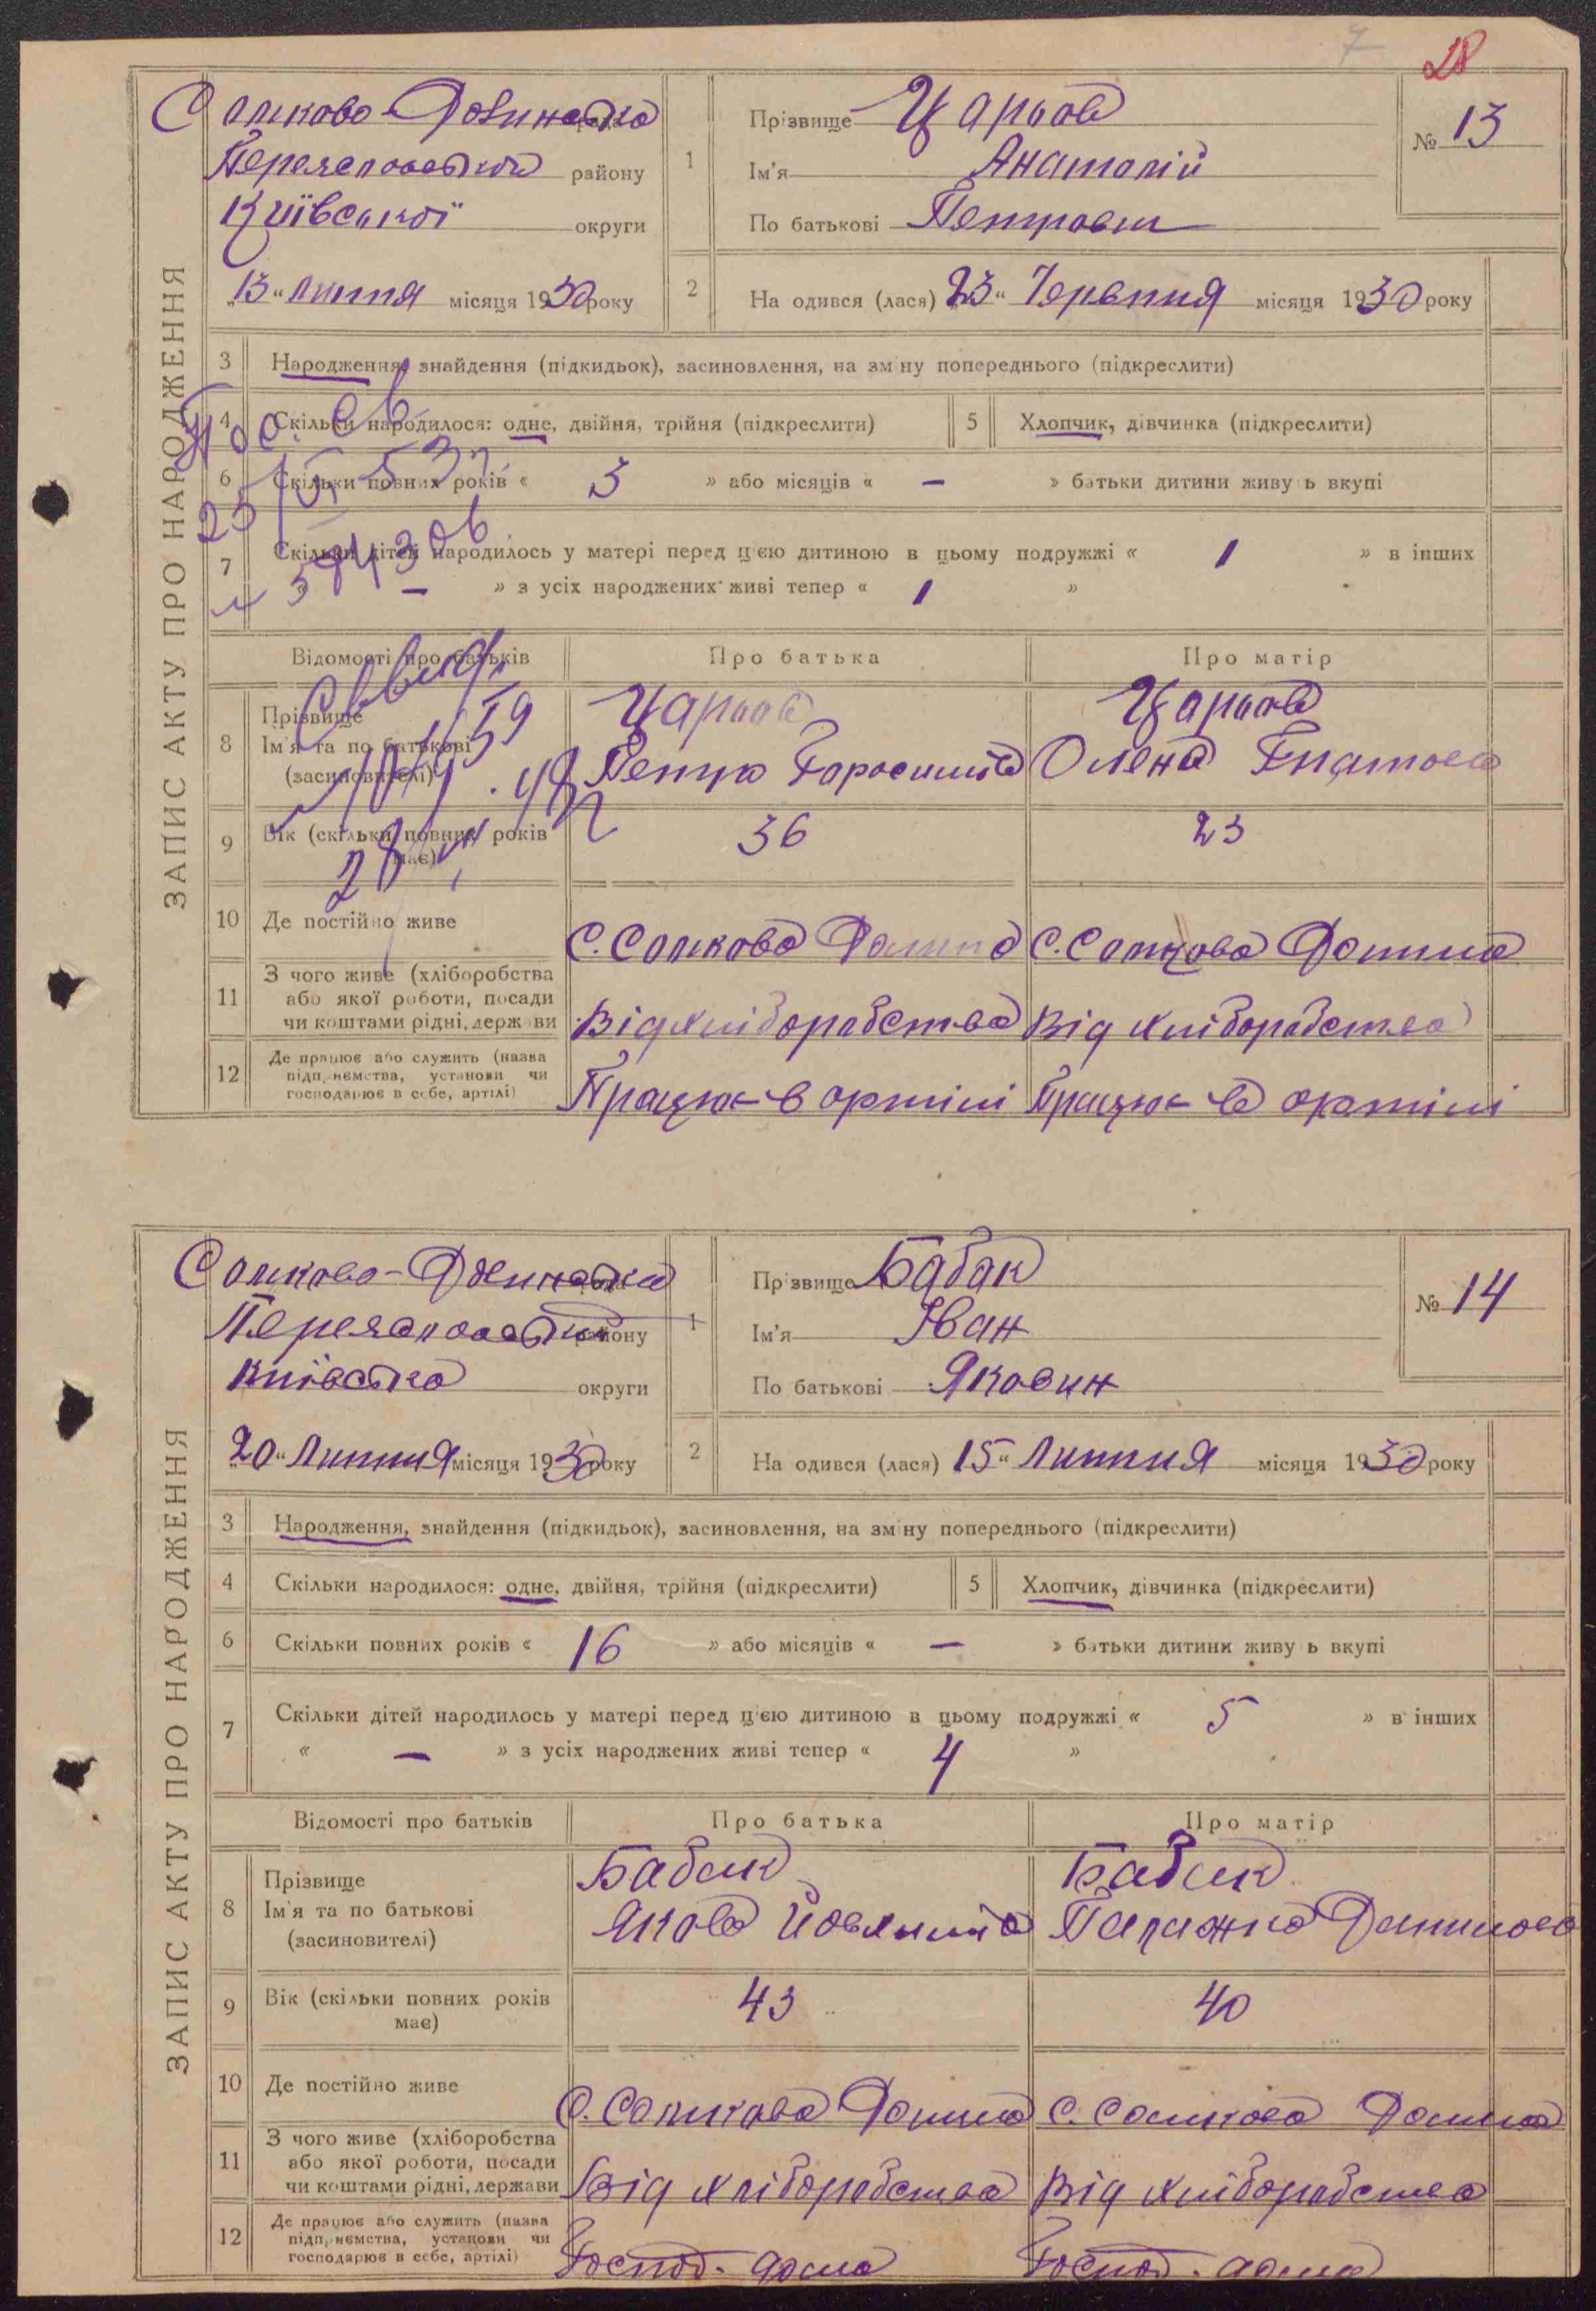 7
28
ЗАПИС АКТУ ПРО НАРОДЖЕННЯ
району
Київської округи
„13“ липня місяця 1930 року
1
Прізвище Царьов
Ім'я Анатолій
По батькові Петрович
№ 13
2
На одився (лася) „23“ Червня місяця 1930 року
3 Народження, знайдення (підкидьок), засиновлення, на зм ну попереднього (підкреслити)
4 Скільки народилося: одне, двійня, трійня (підкреслити)
5 Хлопчик, дівчинка (підкреслити)
6 Скільки повних років « 3 » або місяців « — » батьки дитини живу ь вкупі
7 Скільки дітей народилось у матері перед ц'єю дитиною в цьому подружжі « 1 » в інших
« — » з усіх народжених живі тепер « 1 »
Відомості про батьків
Про батька
Про матір
8 Прізвище
Ім'я та по батькові
(засиновителі)
Царьов
Петро
Царьова
Олена
9 Вік (скільки повних років має)
36
23
10 Де постійно живе
с. Сомкова Долина
с. Сомкова Долина
11 З чого живе (хліборобства або якої роботи, посади чи коштами рідні, держави
Від хліборобства
Від хліборобства
12 Де працює або служить (назва підпр иємства, установи чи господарює в себе, артілі)
Працює в артілі
Працює в артілі
ЗАПИС АКТУ ПРО НАРОДЖЕННЯ
району
Київська округи
„20“ Липня місяця 1930 року
1
Пр звище Бабак
Ім'я Іван
По батькові Якович
№ 14
2
На одився (лася) „15“ Липня місяця 1930 року
3 Народження, знайдення (підкидьок), засиновлення, на зм ну попереднього (підкреслити)
4 Скільки народилося: одне, двійня, трійня (підкреслити)
5 Хлопчик, дівчинка (підкреслити)
6 Скільки повних років « 16 » або місяців « — » батьки дитини живу ь вкупі
7 Скільки дітей народилось у матері перед ц'єю дитиною в цьому подружжі « 5 » в інших
« — » з усіх народжених живі тепер « 4 »
Відомості про батьків
Про батька
Про матір
8 Прізвище
Ім'я та по батькові
(засиновителі)
Бабак
Яков
Бабак
Паражка Данилова
9 Вік (скільки повних років має)
43
40
10 Де постійно живе
с. Сомкова Долина
с. Сомкова Долина
11 З чого живе (хліборобства або якої роботи, посади чи коштами рідні, держави
Від хліборобства
Від хліборобства
12 Де працює або служить (назва підпр иємства, установи чи господарює в себе, артілі)
Господ. дома
Господ. дома